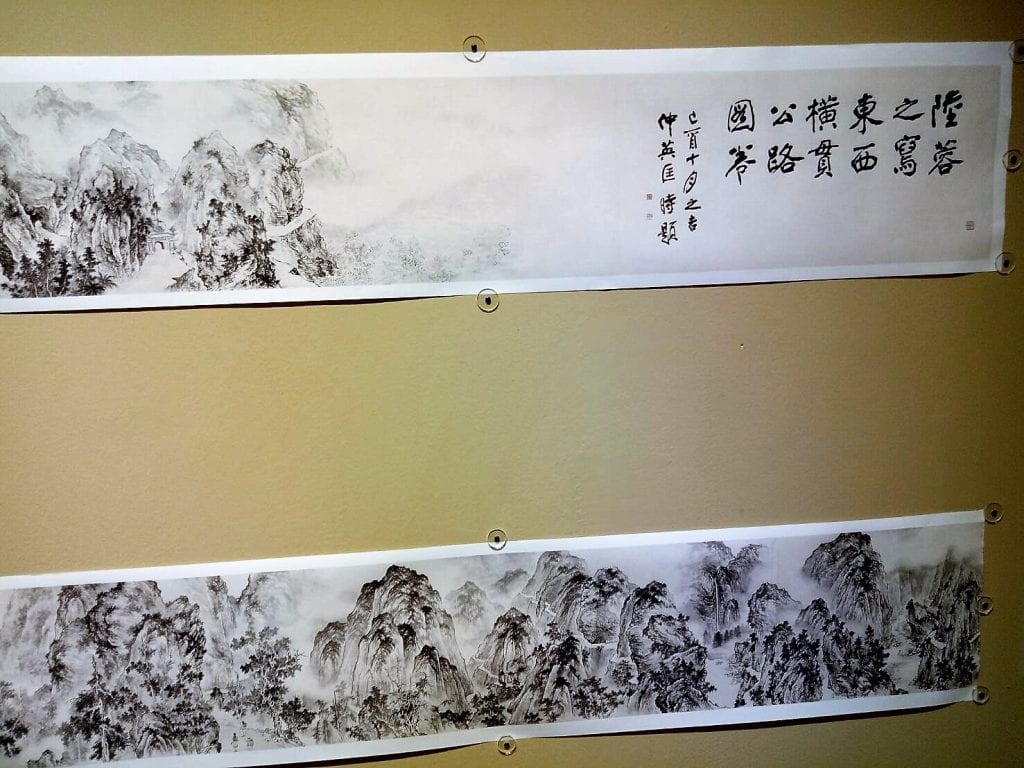 陸蓉
之寫
東西
橫貫
公路
圖卷
己酉十月之吉
仲英匡時題